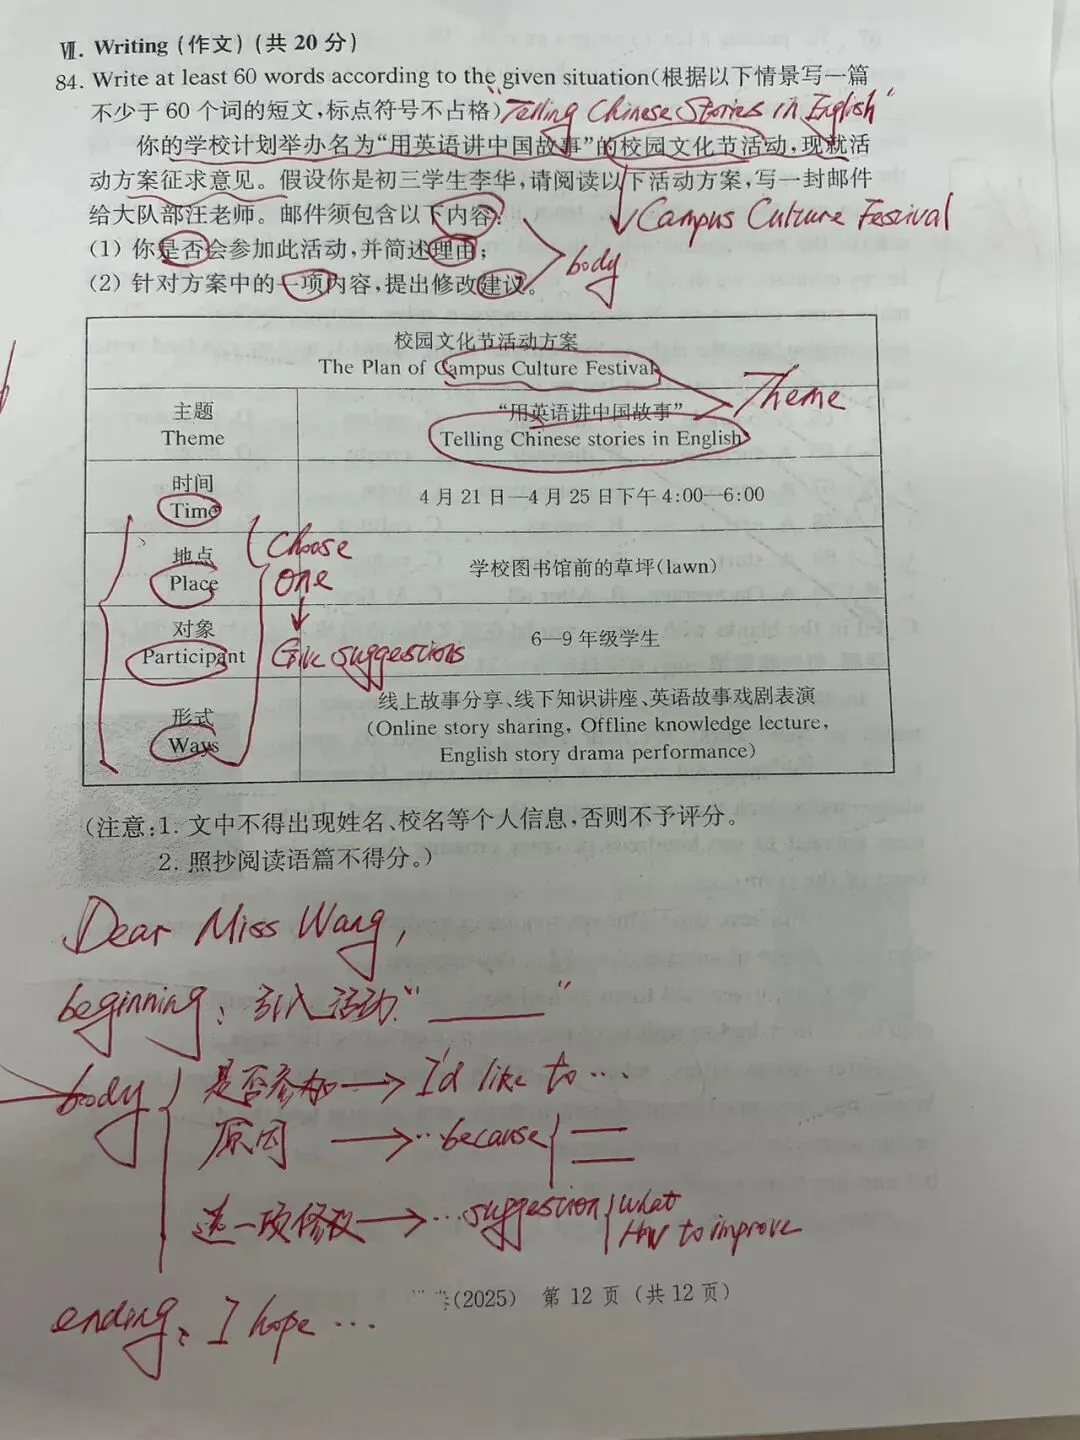 Ⅶ. Writing (作文) (共 20 分)
84. Write at least 60 words according to the given situation(根据以下情景写一篇
不少于 60 个词的短文,标点符号不占格)
"Telling Chinese Stories in English"
你的学校计划举办名为“用英语讲中国故事”的校园文化节活动,现就活
动方案征求意见。假设你是初三学生李华,请阅读以下活动方案,写一封邮件
给大队部汪老师。邮件须包含以下内容:
Campus Culture Festival
(1) 你是否会参加此活动,并简述理由;
body
(2) 针对方案中的一项内容,提出修改建议。
校园文化节活动方案
The Plan of Campus Culture Festival
Theme
主题
Theme
“用英语讲中国故事”
Telling Chinese stories in English
时间
Time
4 月 21 日—4 月 25 日下午 4:00—6:00
地点
Place
学校图书馆前的草坪(lawn)
Choose
one
对象
Participant
6—9 年级学生
Give suggestions
形式
Ways
线上故事分享、线下知识讲座、英语故事戏剧表演
(Online story sharing, Offline knowledge lecture,
English story drama performance)
(注意:1. 文中不得出现姓名、校名等个人信息,否则不予评分。
2. 照抄阅读语篇不得分。)
Dear Miss Wang,
beginning: 引入活动“ ”
body
是否参加→I'd like to ...
原因 → ...because
选一项修改→ ...suggestion
what
How to improve
(2025) 第 12 页 (共 12 页)
ending: I hope ...